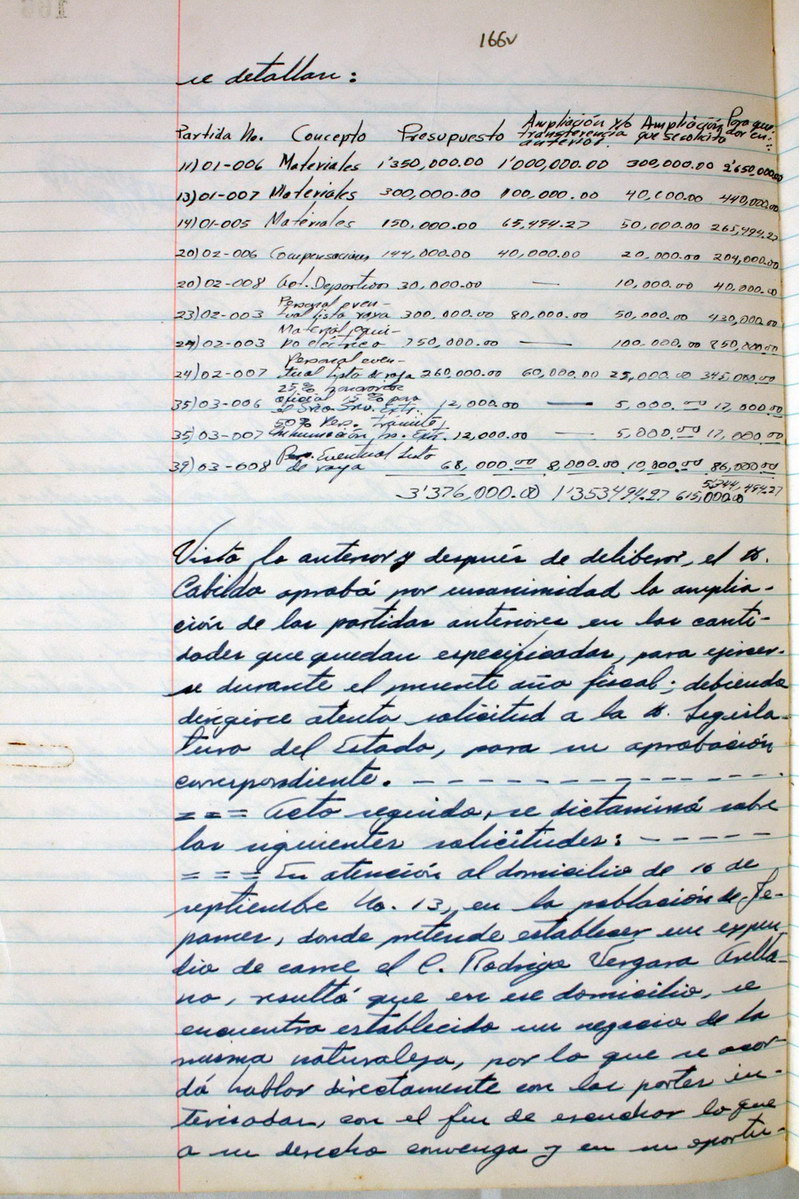 166v
se detallan :
Partida No. Concepto Presupuesto Ampliación y/o transferencia anterior. Ampliación que se solicita Para quedar en:
11) 01-006 Materiales 1'350,000.00 1'000,000.00 300,000.00 2'650,000.00
13) 01-007 Materiales 300,000.00 100,000.00 40,000.00 440,000.00
14) 01-005 Materiales 150.000.00 65,494.27 50,000.00 265,494.27
20) 02-006 Compensaciones 144,000.00 40,000.00 20.000.00 204,000.00
20) 02-008 Deportivos 30,000.00 — 10,000.00 40,000.00
23) 02-003 Personal even-tual lista raya 300,000.00 80,000.00 50,000.00 430,000.00
02-003 Material equi-po electrico 750,000.00 — 100,000.00 850,000.00
24) 02-007 Personal even-tual lista de raya 260,000.00 60,000.00 25,000.00 345,000.00
35) 03-006 25% oficial 15% para el Srio. 12,000.00 — 5,000.00 17,000.00
35) 03-007 50% 12,000.00 — 5,000.00 17,000.00
39) 03-008 Per. Eventual Lista de raya 68,000.00 8,000.00 10,000.00 86,000.00
3'376,000.00 1'353494.27 615,000.00 5'344,494.27
Visto lo anterior y después de deliberar, el H.
Cabildo aprobó por unanimidad la amplia-
ción de las partidas anteriores en las canti-
dades que quedan especificadas, para ejercer-
se durante el presente año fiscal; debiendo
dirigirce atenta solicitud a la H. Legisla-
tura del Estado, para su aprobación
correspondiente. - - - - - - - - - - - - -
= = = Acto seguido, se dictaminó sobre
las siguientes solicitudes: - - - - -
= = = En atención al domicilio de 16 de
septiembre No. 13, en la población de Te-
pames, donde pretende establecer un expen-
dio de carne el C. Rodrigo Vergara Arella-
no, resultó que en ese domicilio, se
encuentra establecido un negocio de la
misma naturaleza, por lo que se acor-
dó hablar directamente con las partes in-
teresadas, con el fin de escuchar lo que
a su derecho convenga y en su oportu-